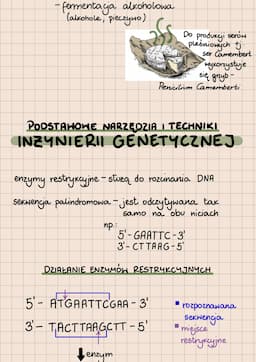 - fermentacja alkoholowa
(alkohole, pieczywo)
Do produkcji serów
pleśniowych tj
ser Camembert
wykorzystuje
się grzyb -
Penicilium Camemberti
PODSTAWOWE NARZĘDZIA I TECHNIKI
INŻYNIERII GENETYCZNEJ
enzymy restrykcyjne - służą do rozcinania DNA
sekwencja palindromowa - jest odczytywana tak
samo na obu niciach
np.:
5'- GAATTC -3'
3'- CTTAAG -5'
DZIAŁANIE ENZYMÓW RESTRYKCYJNYCH
5'- ATGAATTCGAA - 3'
3'- TACTTAAGCTT - 5'
rozpoznawana
sekwencja
miejsce
restrykcyjne
enzym